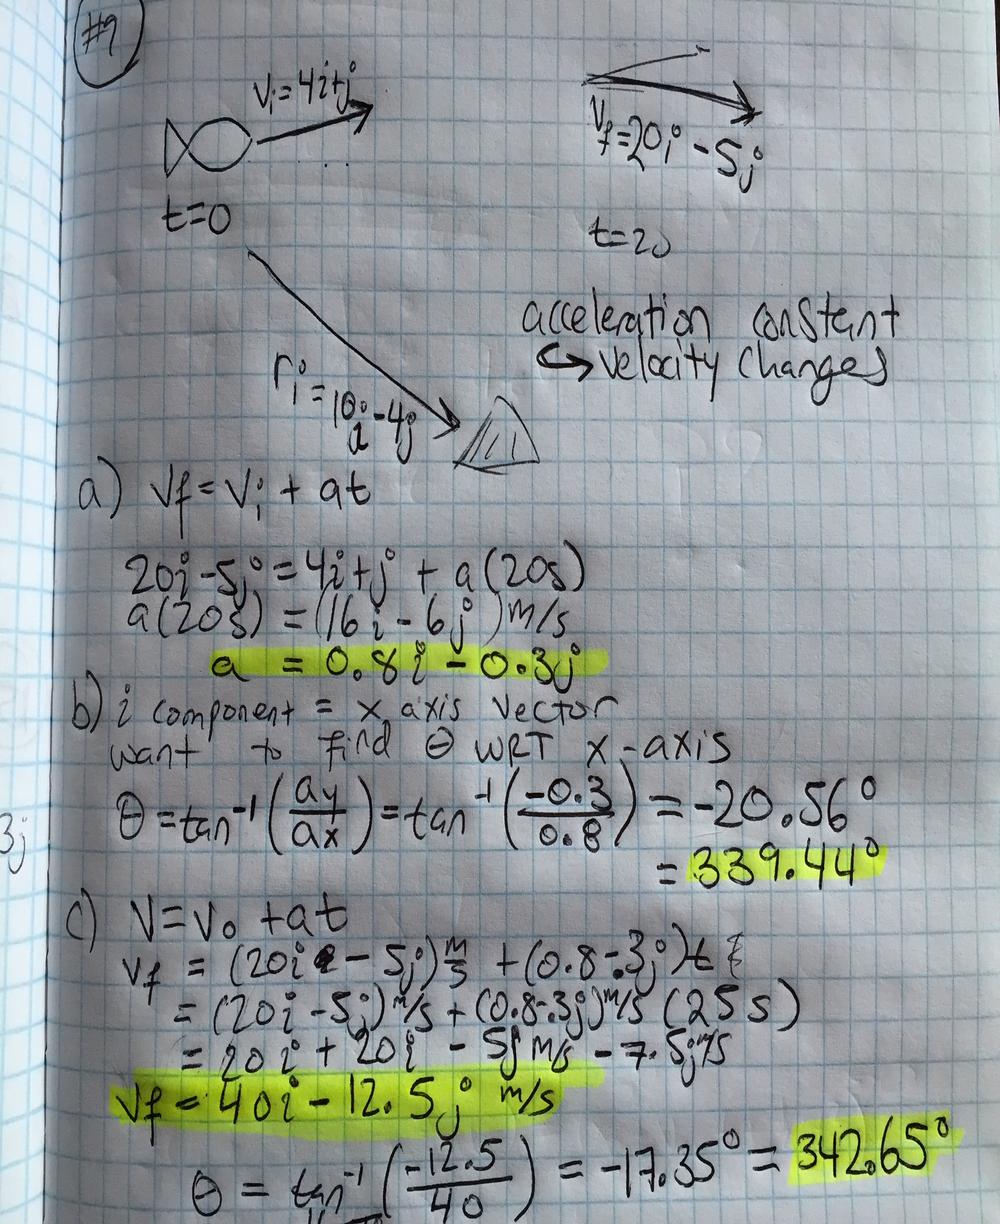 #9
Vi = 4i+j
Vf = 20i - 5j
t=0
t=20
acceleration constant
↳ velocity changes
ri = 10i - 4j
a) Vf = Vi + at
20i - 5j = 4i + j + a(20s)
a(20s) = (16i - 6j) m/s
a = 0.8i - 0.3j
b) i component = x axis vector
want to find θ WRT x-axis
θ = tan⁻¹(ay/ax) = tan⁻¹(-0.3/0.8) = -20.56°
= 339.44°
3j
c) V = V₀ + at
Vf = (20i - 5j) m/s + (0.8 - .3j)t
= (20i - 5j) m/s + (0.8 - .3j) m/s (25s)
= 20i + 20i - 5j m/s - 7.5j m/s
Vf = 40i - 12.5j m/s
θ = tan⁻¹(-12.5/40) = -17.35° = 342.65°